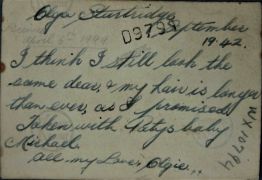 Olga Sturtridge
September
D3793
1942.
I think I still look the
same dear, & my hair is longer
than ever, as I promised.
Taken with Patys baby
Michael.
All my Love, Olgie..
WX10794